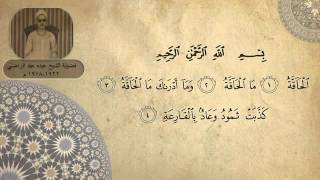 بِسْمِ اللَّهِ الرَّحْمَٰنِ الرَّحِيمِ
الْحَاقَّةُ ١ مَا الْحَاقَّةُ ٢ وَمَا أَدْرَىٰكَ مَا الْحَاقَّةُ ٣
كَذَّبَتْ ثَمُودُ وَعَادٌ بِالْقَارِعَةِ ٤
فضيلة الشيخ عبده عبد الراضي
١٩٢٢-١٩٧٨م